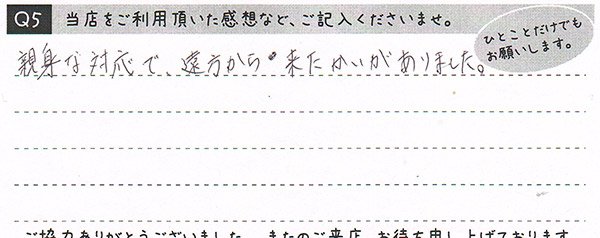 Q5 当店をご利用頂いた感想など、ご記入くださいませ。
ひとことだけでも
お願いします。
親身な対応で、遠方から来たかいがありました。
ご協力ありがとうございました。またのご来店、お待ち申し上げております